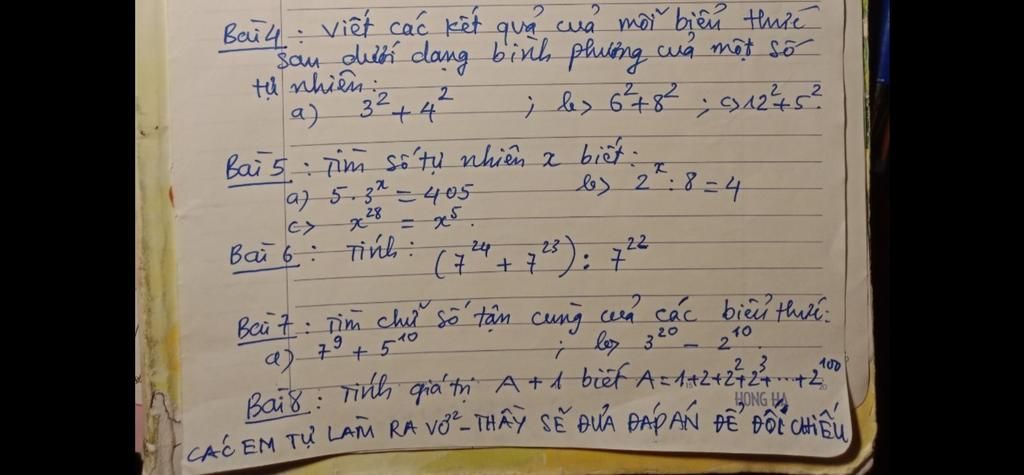 Bài 4: Viết các kết quả của mỗi biểu thức
sau dưới dạng bình phương của một số
tự nhiên:
a) 3² + 4² ; b> 6²+8² ; c> 12²+5².
Bài 5: Tìm số tự nhiên x biết:
a) 5 . 3ˣ = 405 b> 2ˣ : 8 = 4
c> x²⁸ = x⁵.
Bài 6: Tính: (7²⁴ + 7²³) : 7²²
Bài 7: Tìm chữ số tận cùng của các biểu thức:
a) 7⁹ + 5¹⁰ ; b> 3²⁰ - 2¹⁰.
Bài 8: Tính giá trị A + 1 biết A = 1+2+2²+2³+...+2¹⁰⁰
HONG HA
CÁC EM TỰ LÀM RA VỞ - THẦY SẼ ĐƯA ĐÁP ÁN ĐỂ ĐỐI CHIẾU